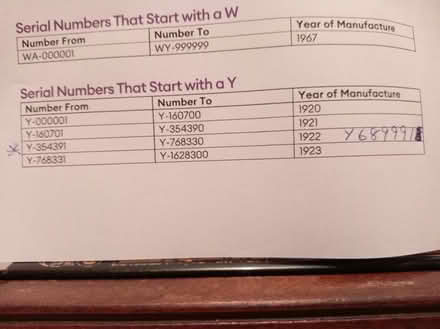 Serial Numbers That Start with a W
Number From Number To Year of Manufacture
WA-000001 WY-999999 1967
Serial Numbers That Start with a Y
Number From Number To Year of Manufacture
Y-000001 Y-160700 1920
Y-160701 Y-354390 1921
Y-354391 Y-768330 1922 Y689991
Y-768331 Y-1628300 1923